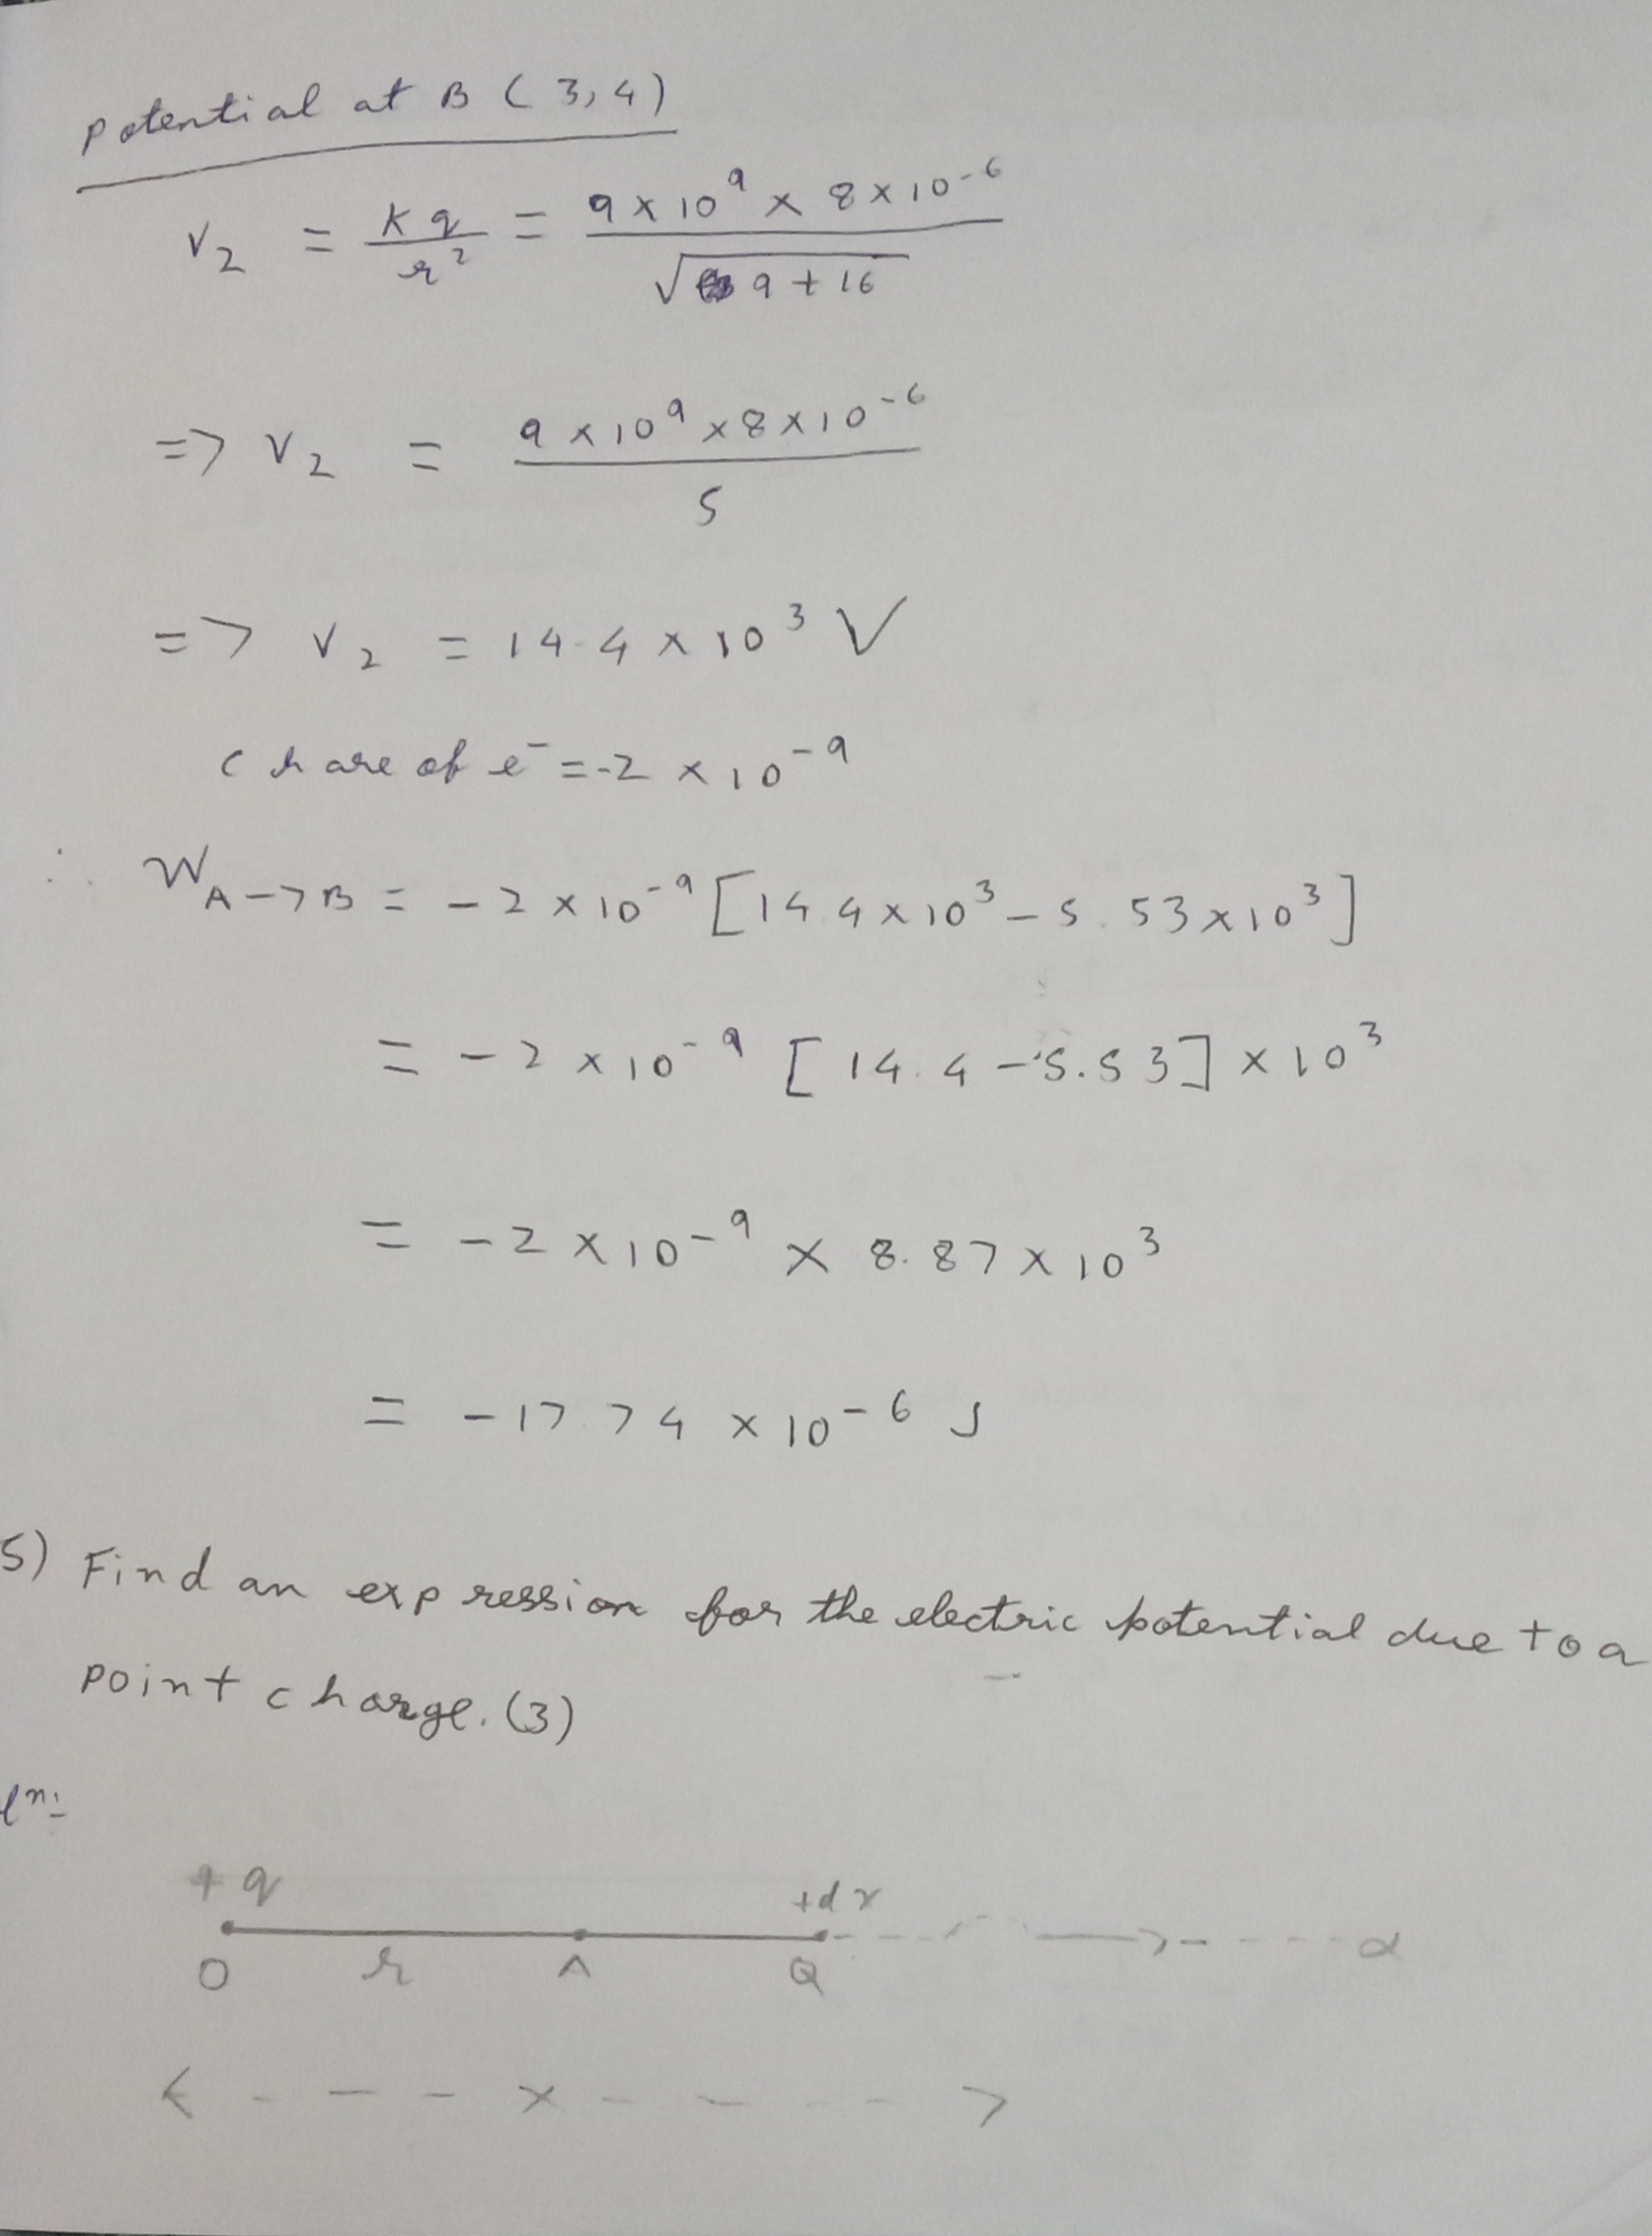 potential at B (3,4)
V₂ = Kq/r² = 9×10⁹ × 8×10⁻⁶/√9+16
=> V₂ = 9×10⁹×8×10⁻⁶/5
=> V₂ = 14.4 × 10³ V
chare of e⁻ = -2 × 10⁻⁹
∴ W A->B = -2×10⁻⁹ [14.4×10³ - 5.53×10³]
= -2×10⁻⁹ [14.4 - 5.53] × 10³
= -2×10⁻⁹ × 8.87×10³
= -17.74 × 10⁻⁶ J
5) Find an expression for the electric potential due to a
point charge. (3)
lⁿ:-
+q +dx
O r A Q α
< - - - x - - - - >